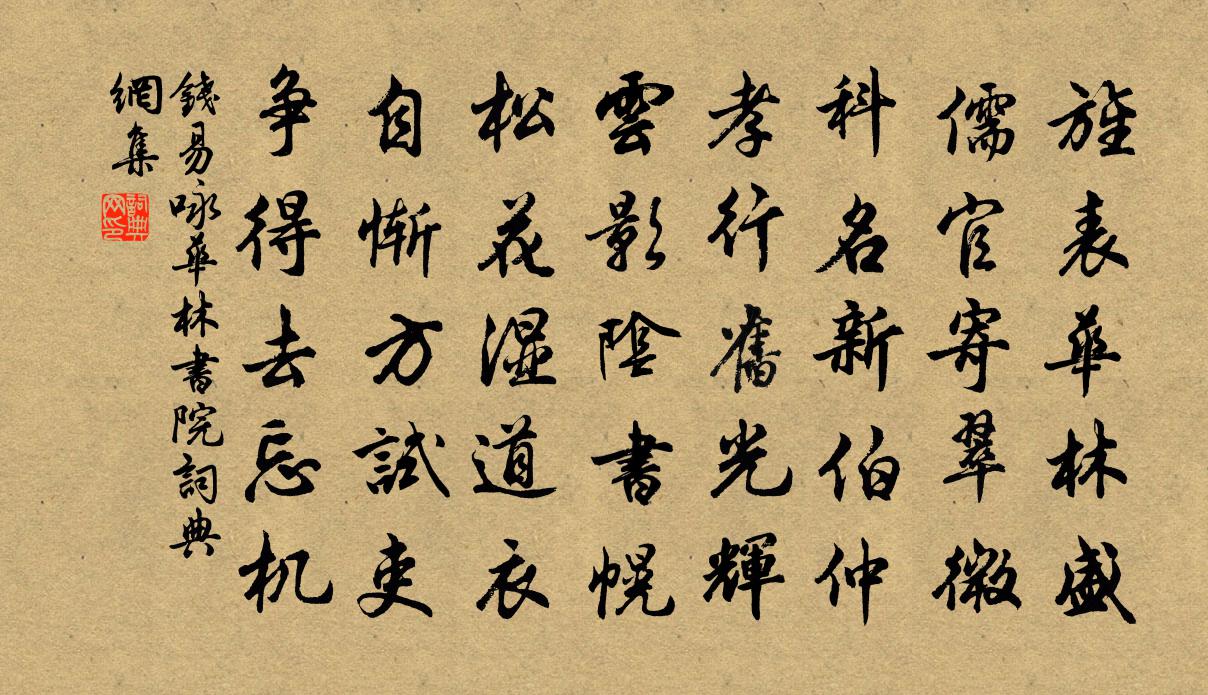 旌表華林盛
儒官寄翠微
科名新伯仲
孝行舊光輝
雲影陰書幌
松花湿道衣
自慚方試吏
争得去忘机
錢易咏華林書院詞典
網集
詞典網印